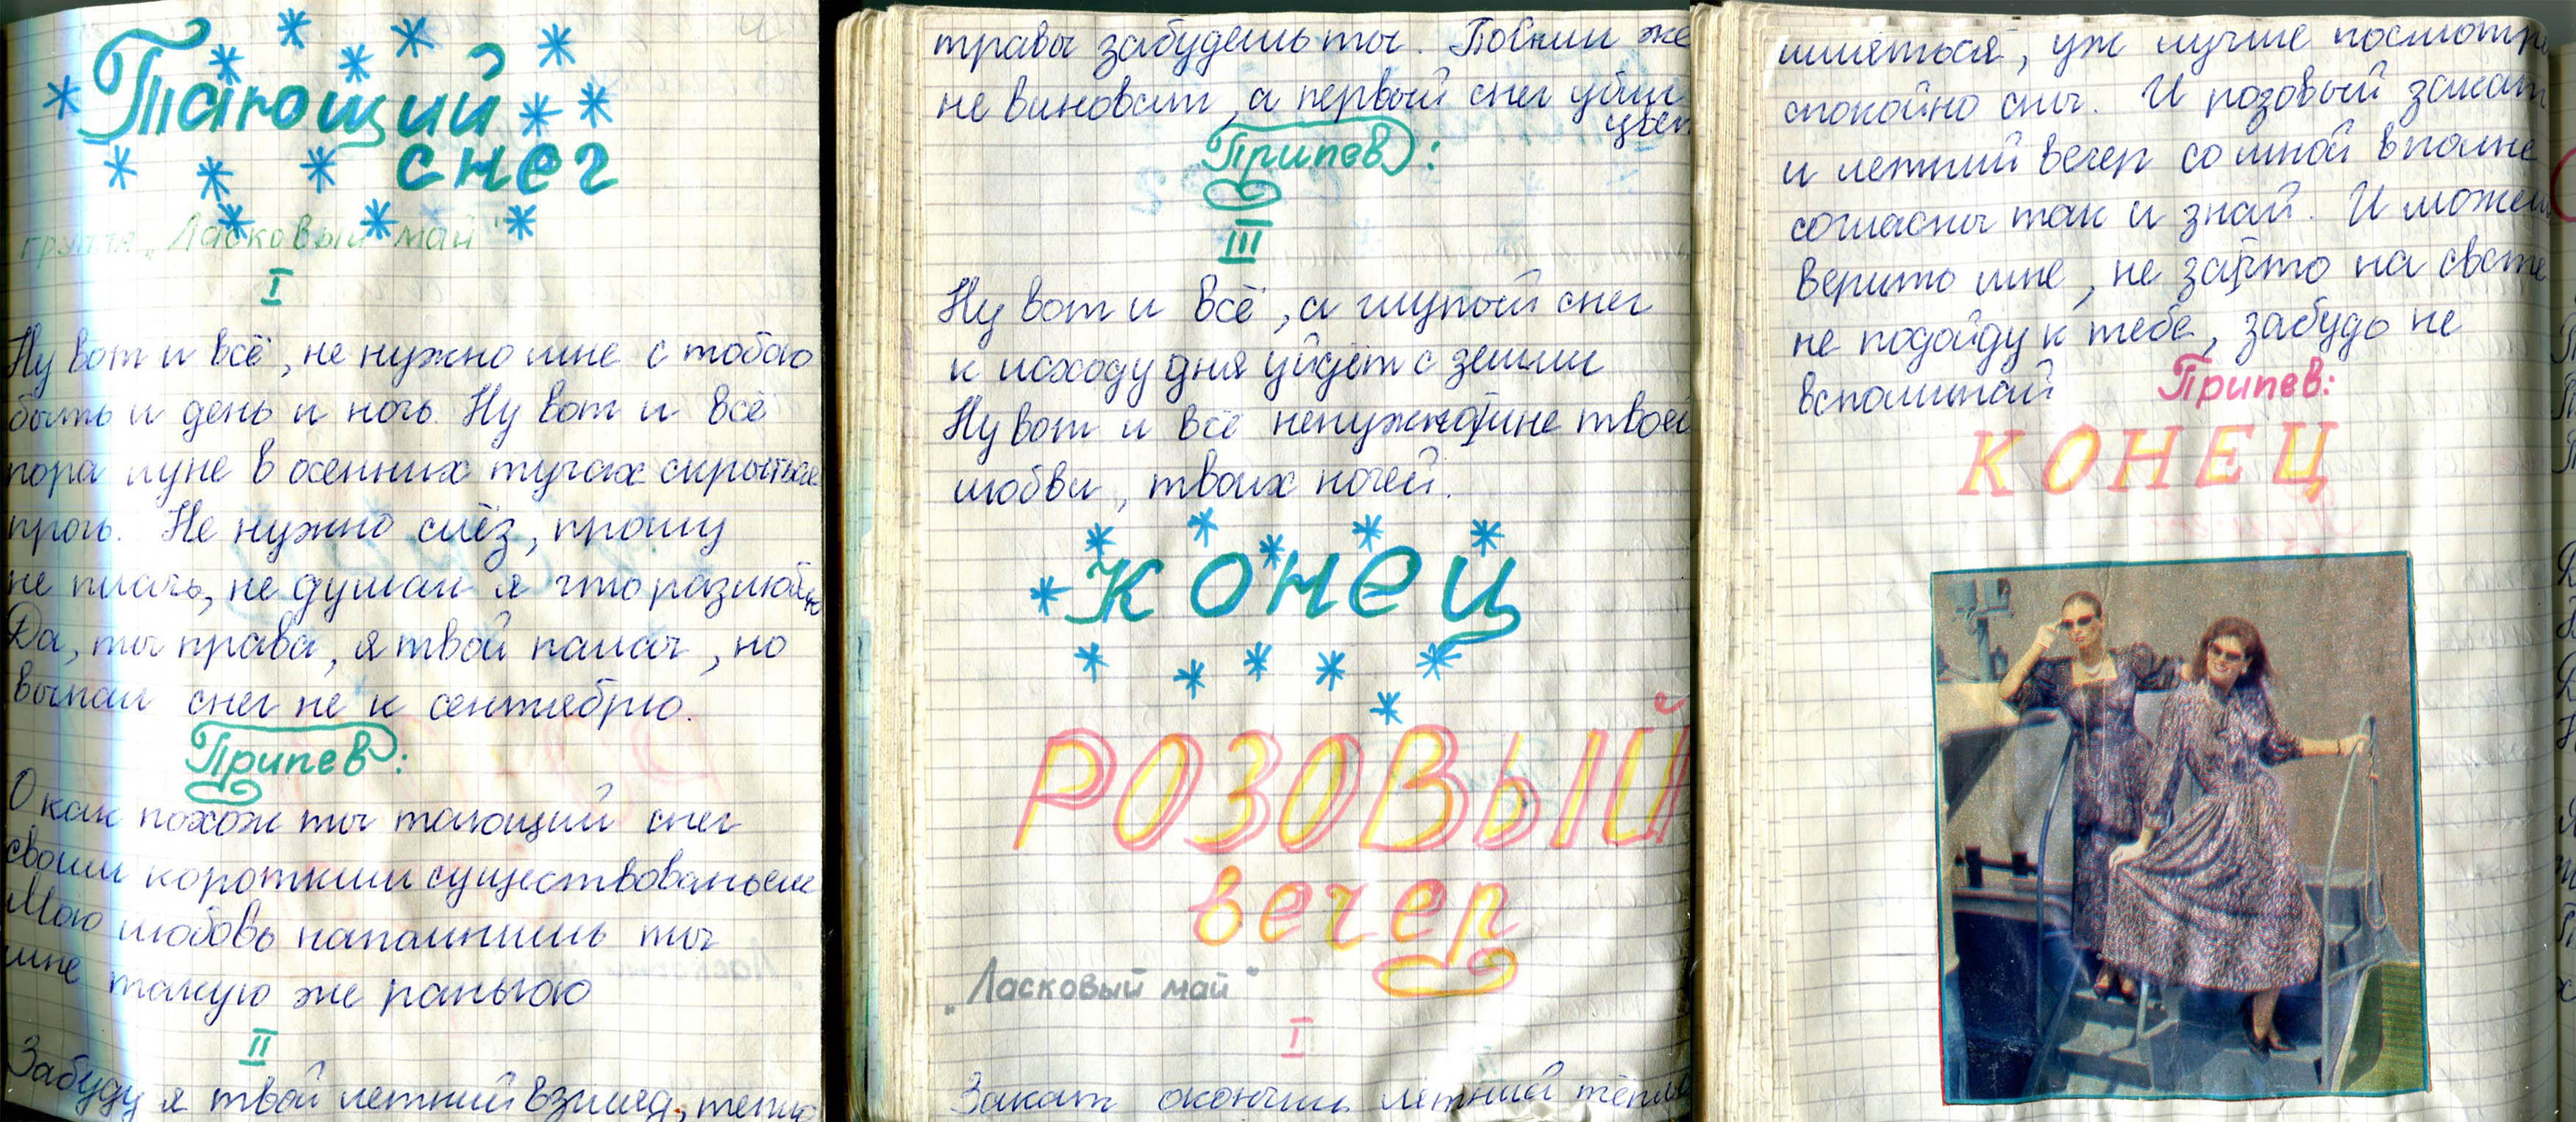 Тающий
снег
группа „Ласковый май"
I
Ну вот и всё, не нужно мне с тобою
быть и день и ночь. Ну вот и всё
пора луне в осенних тучах скрыться
прочь. Не нужно слёз, прошу
не плачь, не думал я что разлюблю
Да, ты права, я твой палач, но
выпал снег не к сентябрю.
Припев:
О как похож ты тающий снег
своим коротким существованьем
Мою любовь напомнишь ты
мне такую же раннюю
II
Забуду я твой летний взгляд, тепло
травы забудешь ты. Пойми же
не виноват, а первый снег убил
цвет
Припев:
III
Ну вот и всё, а глупый снег
к исходу дня уйдёт с земли
Ну вот и всё ненужно мне твоей
любви, твоих ночей.
конец
РОЗОВЫЙ
вечер
„Ласковый май"
I
Закат окончил летний тёпл
шляться, уж лучше посмотри
спокойно сны. И розовый закат
и летний вечер со мной вполне
согласны так и знай. И можешь
верить мне, не за что на свете
не подойду к тебе, забудь не
вспоминай
Припев:
КОНЕЦ